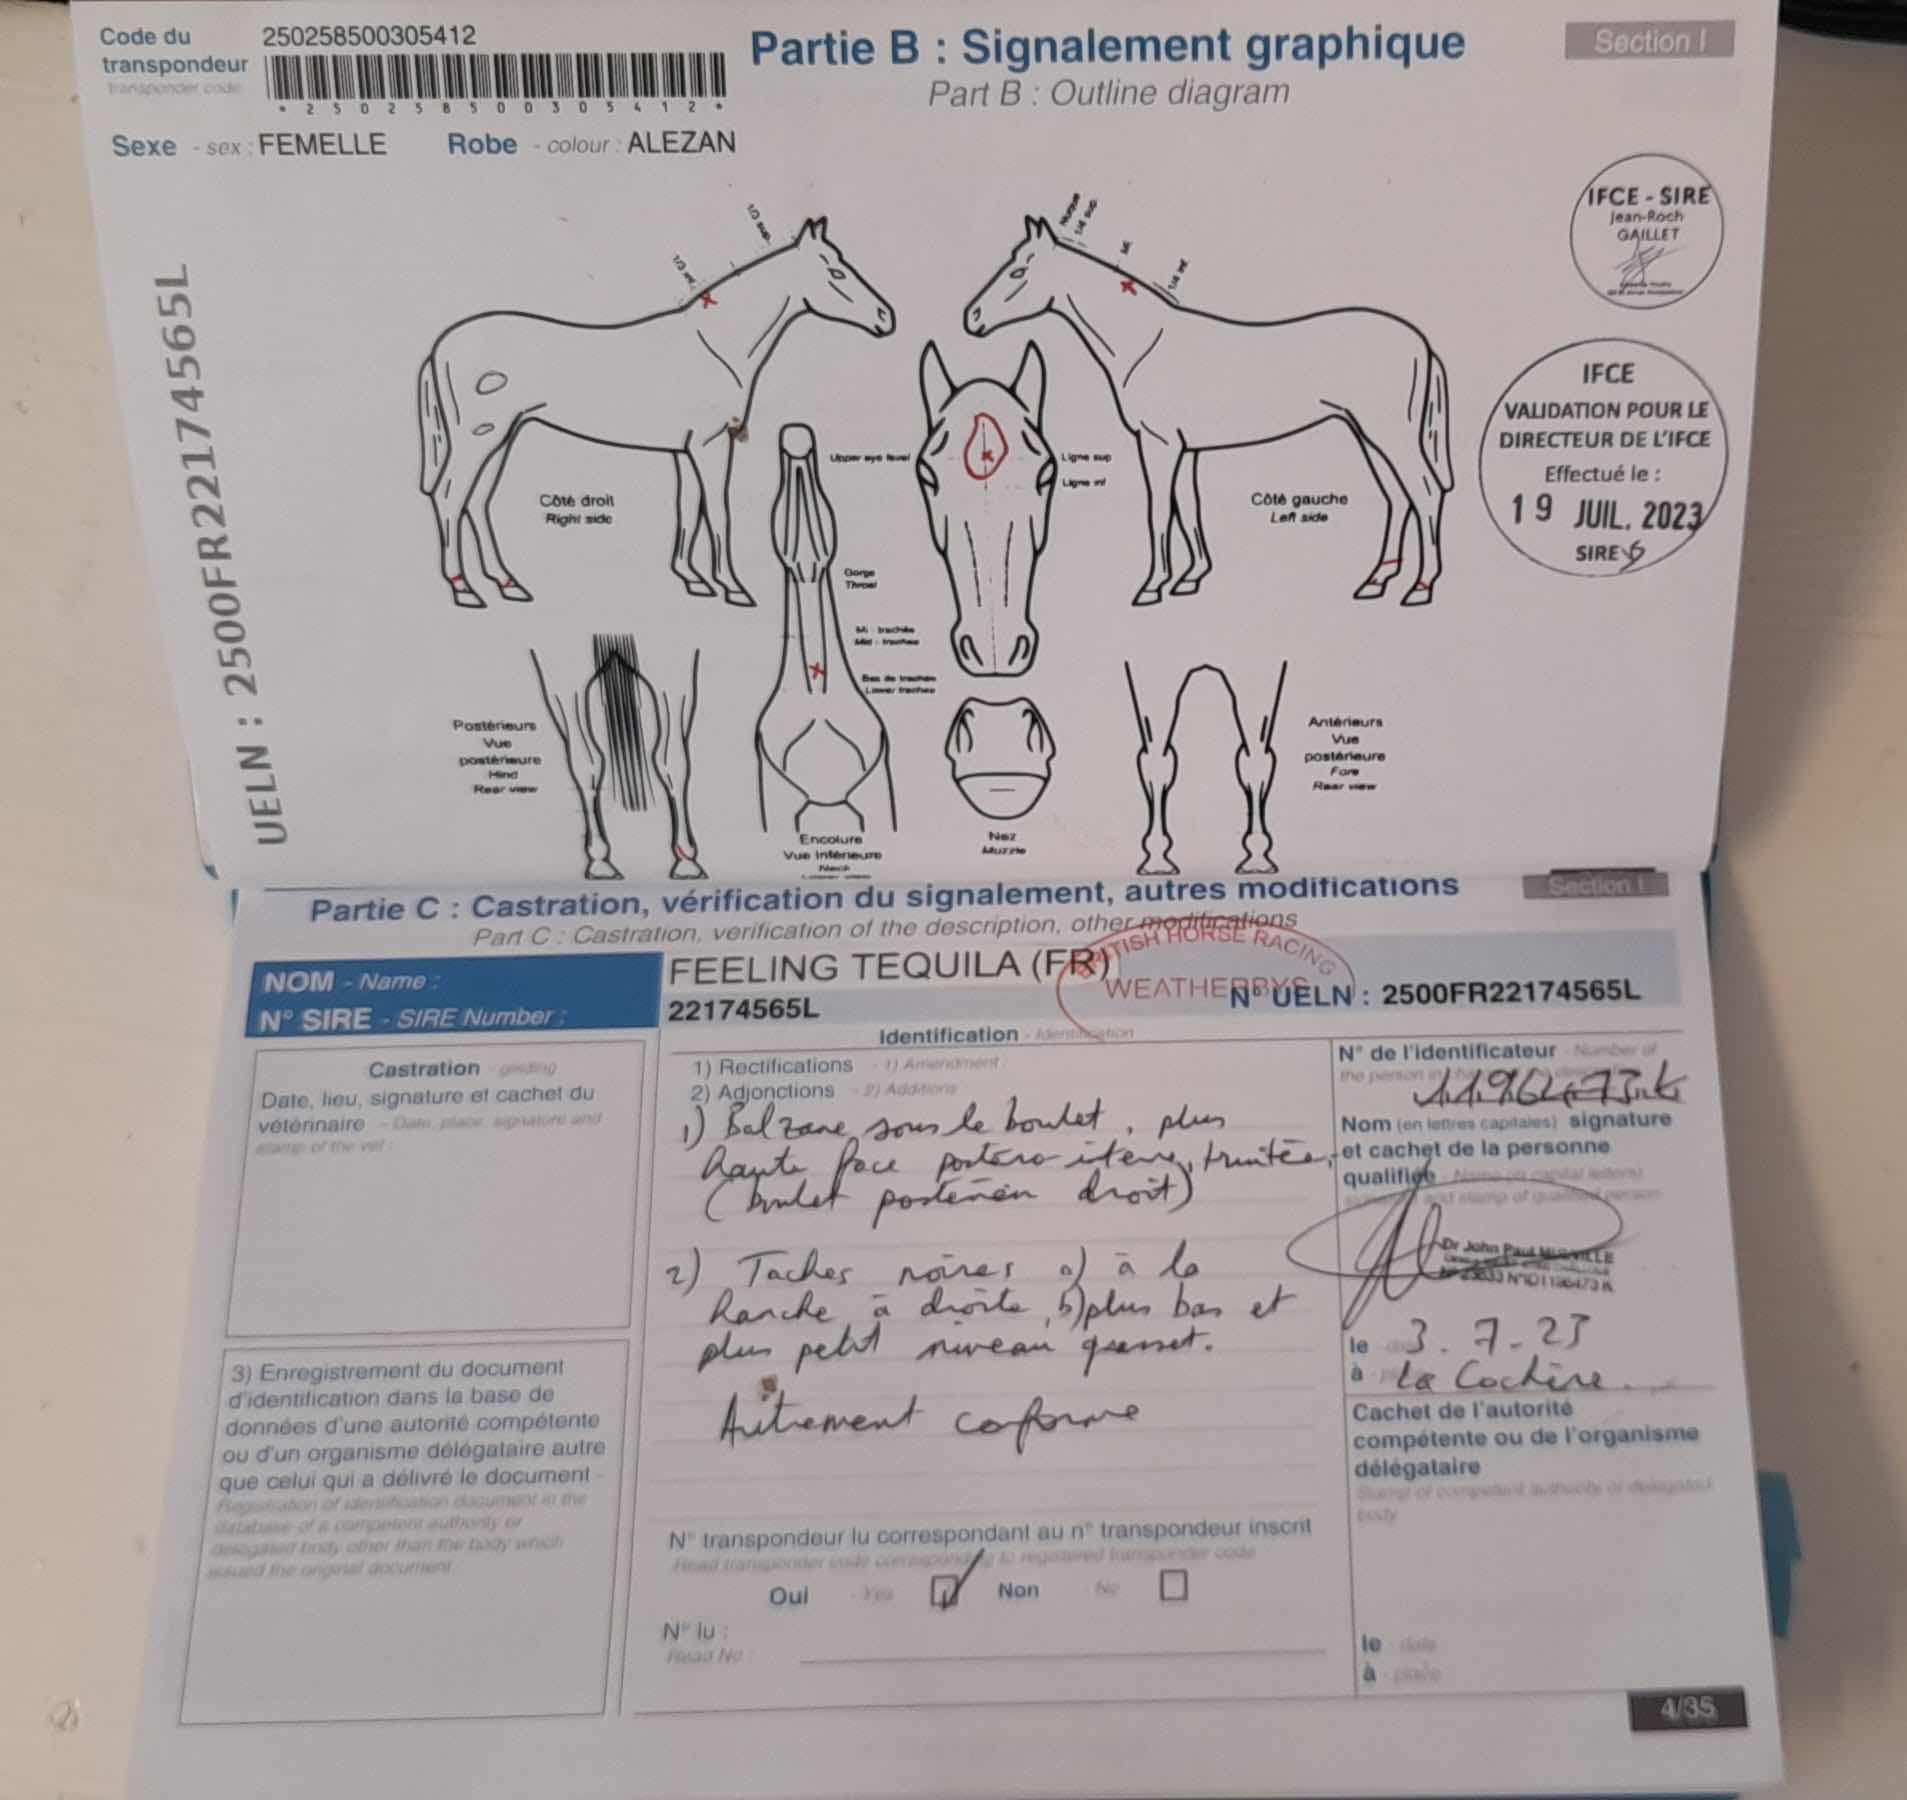 Code du
transpondeur
transponder code
250258500305412
* 250258500305412 *
Partie B : Signalement graphique
Part B : Outline diagram
Section I
Sexe - sex : FEMELLE
Robe - colour : ALEZAN
UELN : 2500FR22174565L
IFCE - SIRE
Jean-Roch
GAILLET
IFCE
VALIDATION POUR LE
DIRECTEUR DE L'IFCE
Effectué le :
19 JUIL. 2023
SIRE
1/3 sup.
1/3 inf.
Nuque
1/4 sup
Mi
1/4 inf
Côté droit
Right side
Upper eye level
Ligne sup
Ligne inf
Côté gauche
Left side
Gorge
Throat
Mi - trachée
Mid - trachea
Bas de trachée
Lower trachea
Postérieurs
Vue
postérieure
Hind
Rear view
Encolure
Vue Inférieure
Neck
Nez
Muzzle
Antérieurs
Vue
postérieure
Fore
Rear view
Partie C : Castration, vérification du signalement, autres modifications
Part C : Castration, verification of the description, other modifications
Section I
NOM - Name :
FEELING TEQUILA (FR)
BRITISH HORSE RACING
WEATHERBYS
N° SIRE - SIRE Number :
22174565L
N° UELN : 2500FR22174565L
Identification - Identification
Castration - gelding
Date, lieu, signature et cachet du
vétérinaire - Date, place, signature and
stamp of the vet :
1) Rectifications - 1) Amendment
2) Adjonctions - 2) Additions
1) Balzane sous le boulet, plus
haute face postero-interne, truitée,
(boulet postérieur droit)
2) Taches noires a) à la
hanche à droite, b) plus bas et
plus petit niveau grasset.
Autrement conforme
N° de l'identificateur - Number of
Nom (en lettres capitales) signature
et cachet de la personne
qualifiée - Name (in capital letters)
signature and stamp of qualified person
Dr John Paul
le 3.7-23
à La Cochère
Cachet de l'autorité
compétente ou de l'organisme
délégataire
Stamp of competent authority or delegated
body
3) Enregistrement du document
d'identification dans la base de
données d'une autorité compétente
ou d'un organisme délégataire autre
que celui qui a délivré le document -
Registration of identification document in the
database of a competent authority or
delegated body other than the body which
issued the original document
N° transpondeur lu correspondant au n° transpondeur inscrit
Read transponder code corresponding to registered transponder code
Oui - Yes Non - No
N° lu :
Read No :
le - date
à - place
4/35